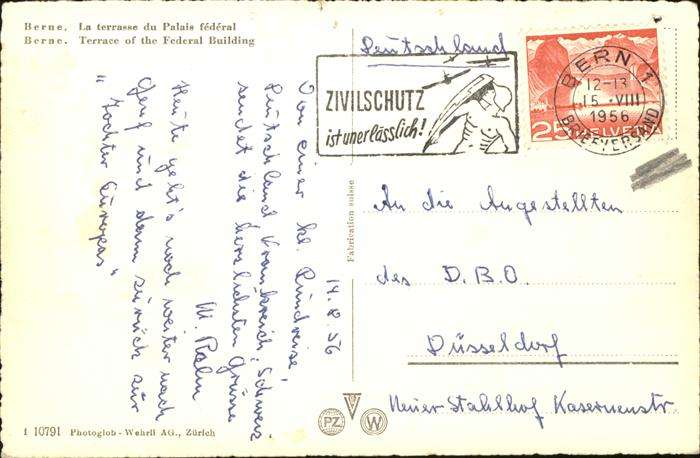 Berne. La terrasse du Palais fédéral
Berne. Terrace of the Federal Building
14.8.56
Von einer kl. Rundreise,
Deutschland Frankreich, Schweiz
sendet die herzlichsten Grüsse
M. Rahn
Heute geht's noch weiter nach
Genf und dann zurück zur
"Tochter Europas"
1 10791 Photoglob-Wehrli AG., Zürich
Fabrication suisse
PZ
W
Deutschland
ZIVILSCHUTZ
ist unerlässlich!
25 HELVETIA
BERN 1
12-13
15.VIII
1956
BRIEFVERSAND
An die Angestellten
des D.B.O.
Düsseldorf
Neuer Stahlhof Kasernenstr.